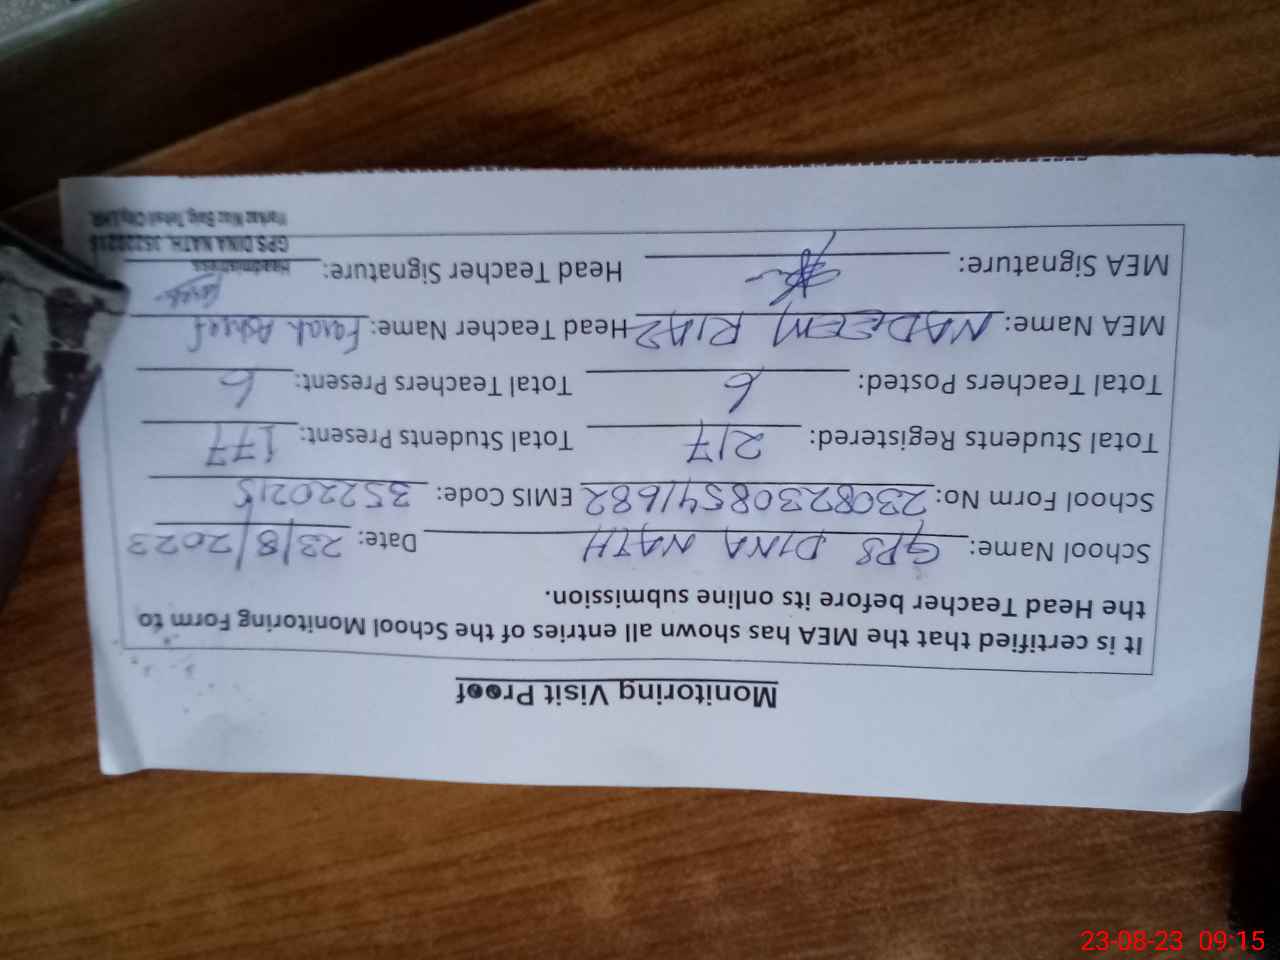 Monitoring Visit Proof
It is certified that the MEA has shown all entries of the School Monitoring Form to
the Head Teacher before its online submission.
School Name: GPS DINA NATH Date: 23/8/2023
School Form No: 2308230854/1682 EMIS Code: 35220215
Total Students Registered: 217 Total Students Present: 177
Total Teachers Posted: 6 Total Teachers Present: 6
MEA Name: NADEEM RIAZ Head Teacher Name: Farah Ashraf
MEA Signature: Head Teacher Signature:
Headmistress
GPS DINA NATH, 35220215
Markaz Niaz Baig, Tehsil City, LHR
23-08-23 09:15